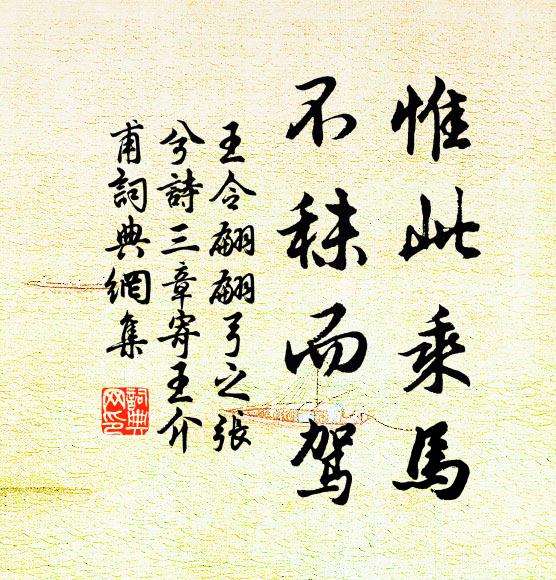 惟此乘馬
不秣而駕
王令翩翩弓之張
兮詩三章寄王介
甫詞典網集
詞典
网印